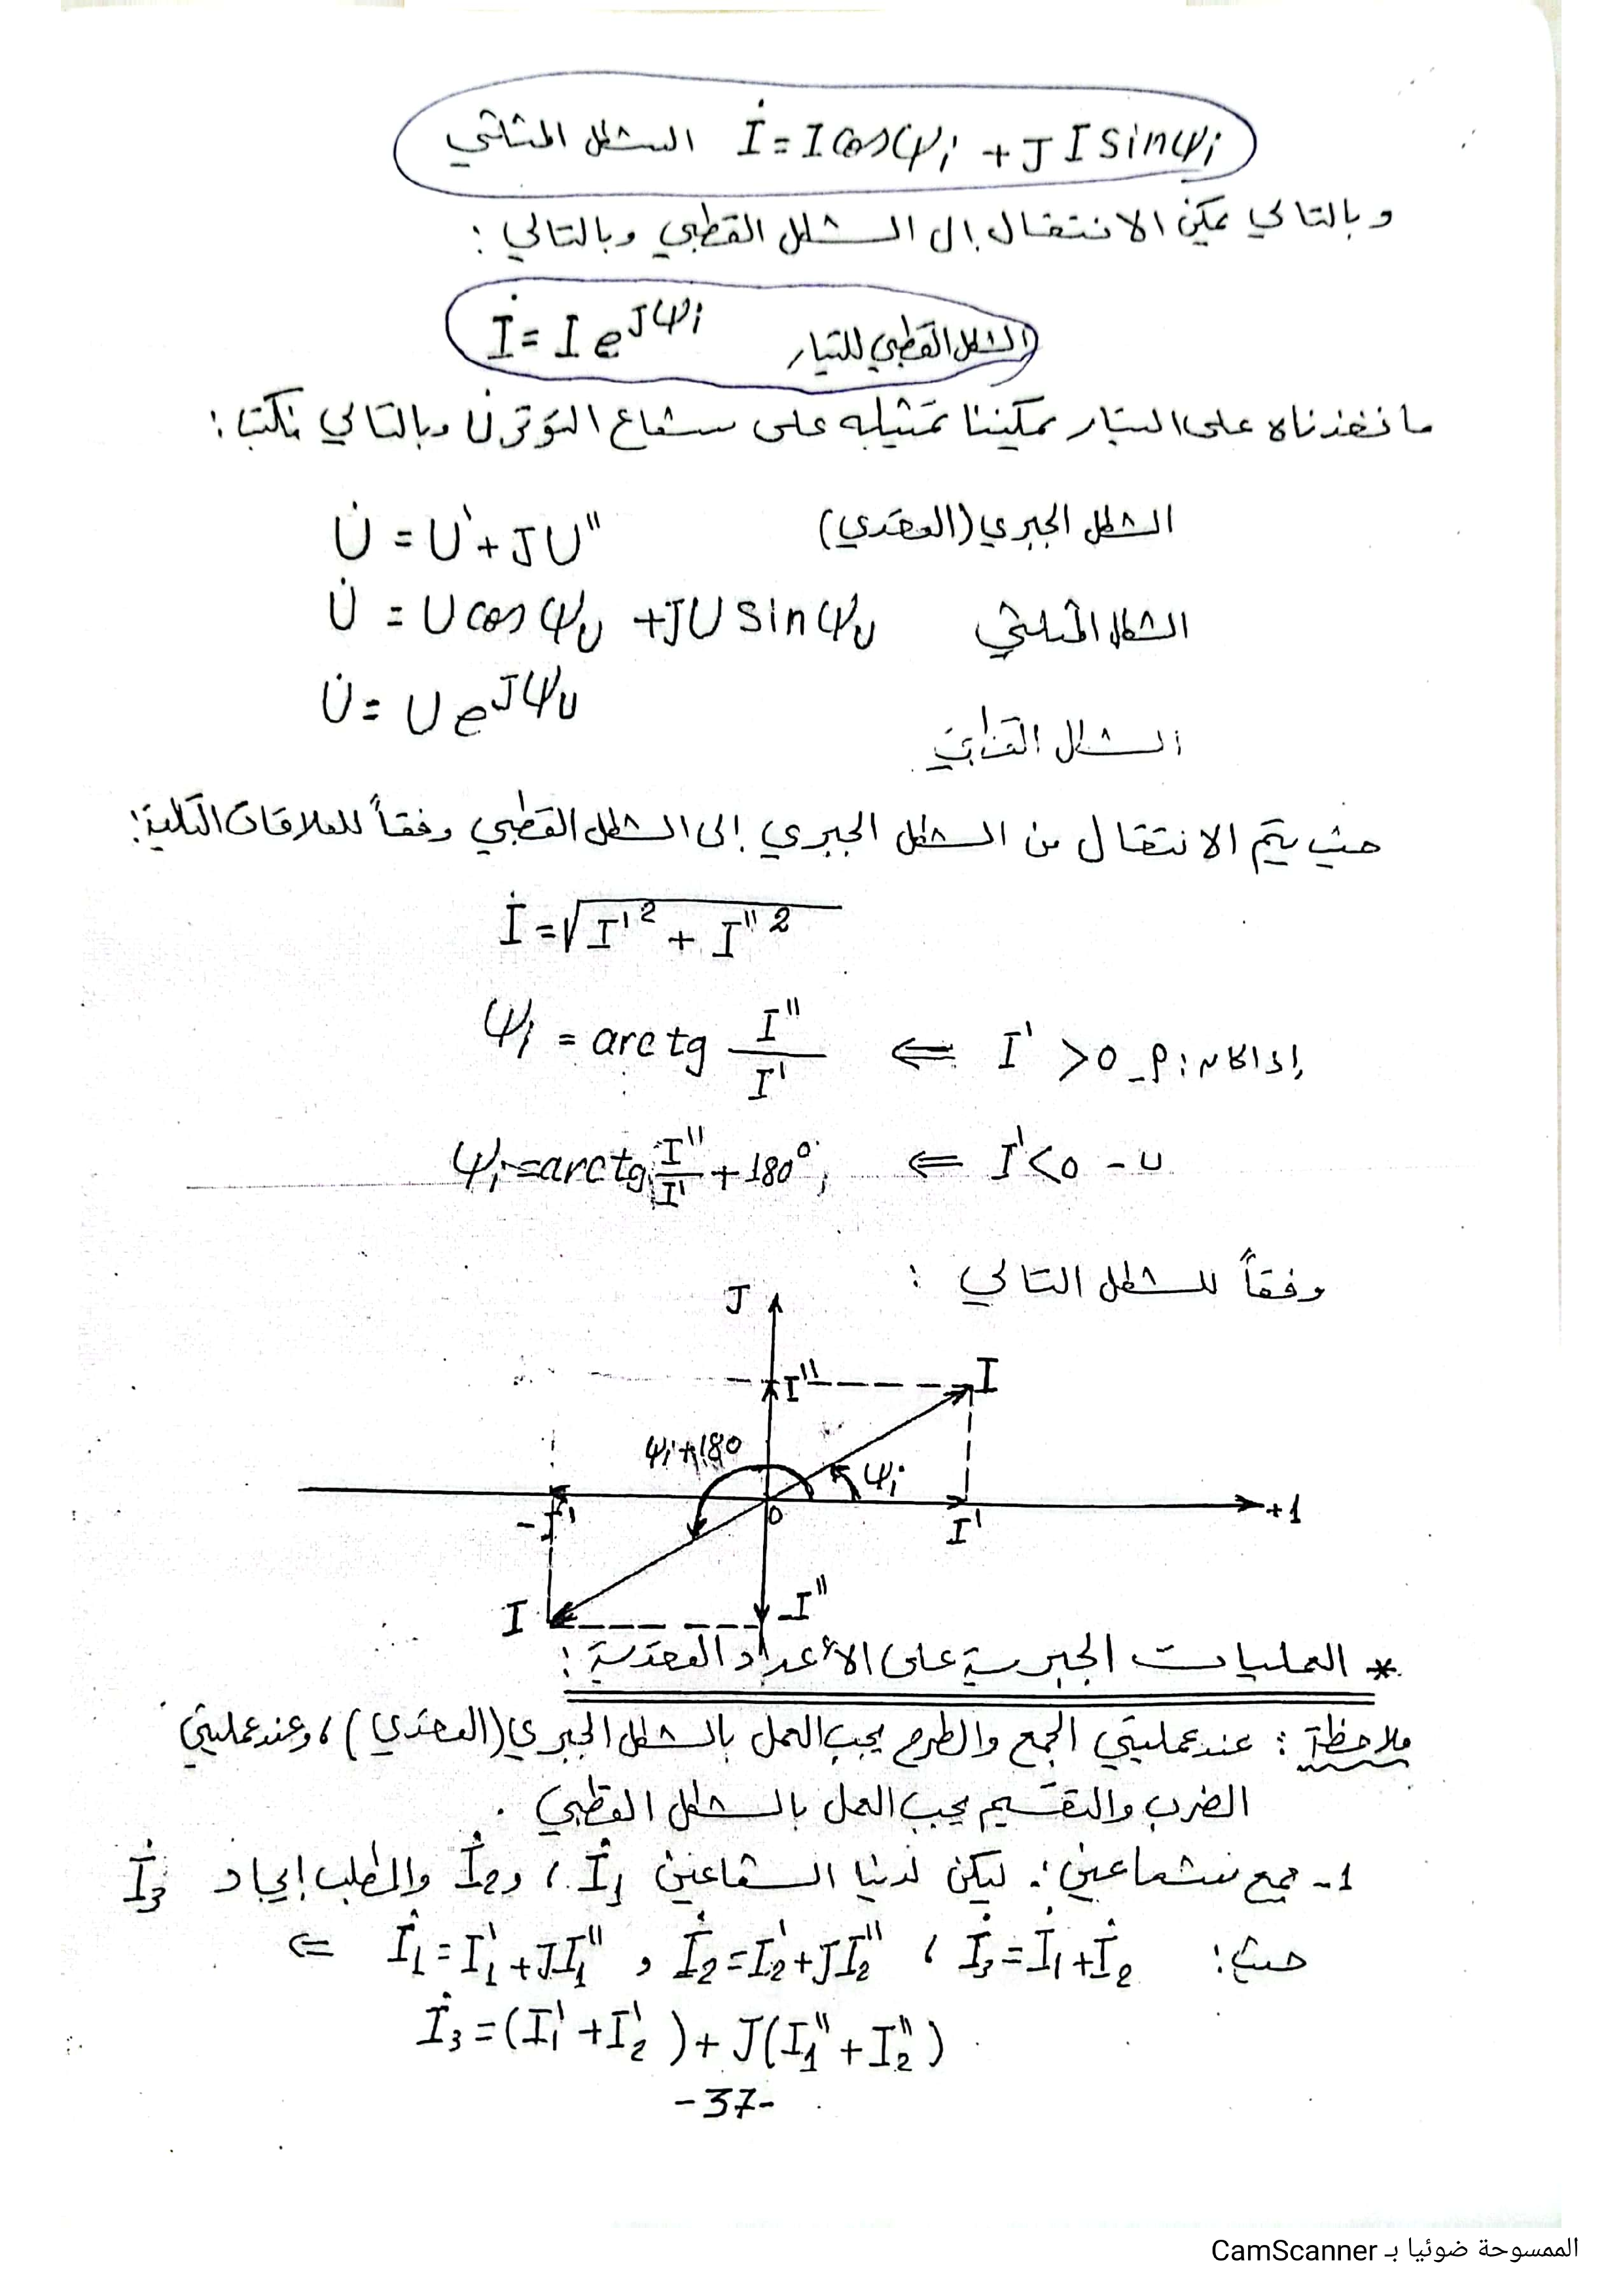 الشكل المثلثي İ = I cosψi + J I sinψi
وبالتالي يمكن الانتقال إلى الشكل القطبي وبالتالي :
İ = I e^Jψi الشكل القطبي للتيار
ما نفذناه على التيار يمكننا تمثيله على شعاع التوتر U̇ وبالتالي نكتب :
U̇ = U' + JU'' الشكل الجبري (العقدي)
U̇ = U cosψu + JU sinψu الشكل المثلثي
U̇ = U e^Jψu
الشكل القطبي
حيث يتم الانتقال من الشكل الجبري إلى الشكل القطبي وفقاً للعلاقات التالية :
İ = √(I'² + I''²)
ψi = arctg I''/I' ⇐ I' > 0 إذا كان : P -
ψi = arctg I''/I' + 180°, ⇐ I' < 0 - ب
وفقاً للشكل التالي :
J
I'' I
ψi+180 ψi
-I' 0 I' +1
I -I''
* العمليات الجبرية على الأعداد العقدية :
ملاحظة : عند عمليتي الجمع والطرح يجب العمل بالشكل الجبري (العقدي) ، وعند عمليتي
الضرب والتقسيم يجب العمل بالشكل القطبي .
1- جمع شعاعين : ليكن لدينا الشعاعين İ1 ، و İ2 والمطلب إيجاد İ3
حيث : İ3 = İ1 + İ2 ، İ2 = I2' + JI2'' , İ1 = I1' + JI1'' ⇐
İ3 = (I1' + I2') + J(I1'' + I2'')
-37-
الممسوحة ضوئيا بـ CamScanner